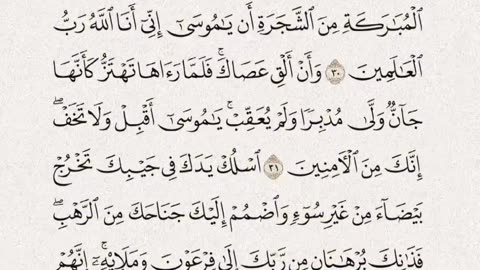 ٱلْمُبَٰرَكَةِ مِنَ ٱلشَّجَرَةِ أَن يَٰمُوسَىٰٓ إِنِّىٓ أَنَا ٱللَّهُ رَبُّ
ٱلْعَٰلَمِينَ ٣٠ وَأَنْ أَلْقِ عَصَاكَ ۚ فَلَمَّا رَءَاهَا تَهْتَزُّ كَأَنَّهَا
جَآنٌّ وَلَّىٰ مُدْبِرًا وَلَمْ يُعَقِّبْ ۚ يَٰمُوسَىٰٓ أَقْبِلْ وَلَا تَخَفْ ۖ
إِنَّكَ مِنَ ٱلْـَٔامِنِينَ ٣١ ٱسْلُكْ يَدَكَ فِى جَيْبِكَ تَخْرُجْ
بَيْضَآءَ مِنْ غَيْرِ سُوٓءٍ وَٱضْمُمْ إِلَيْكَ جَنَاحَكَ مِنَ ٱلرَّهْبِ ۖ
فَذَٰنِكَ بُرْهَٰنَانِ مِن رَّبِّكَ إِلَىٰ فِرْعَوْنَ وَمَلَإِي۟هِۦٓ ۚ إِنَّهُمْ